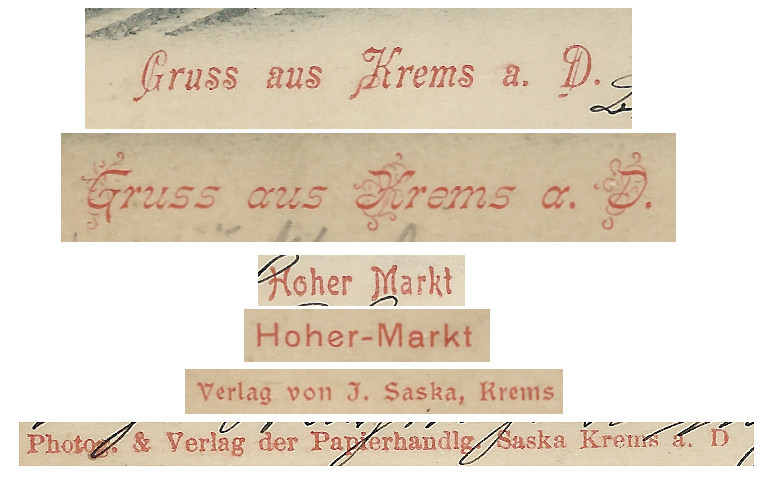 Gruss aus Krems a. D.
Gruss aus Krems a. D.
Hoher Markt
Hoher-Markt
Verlag von J. Saska, Krems
Photogr. & Verlag der Papierhandlg. Saska Krems a. D